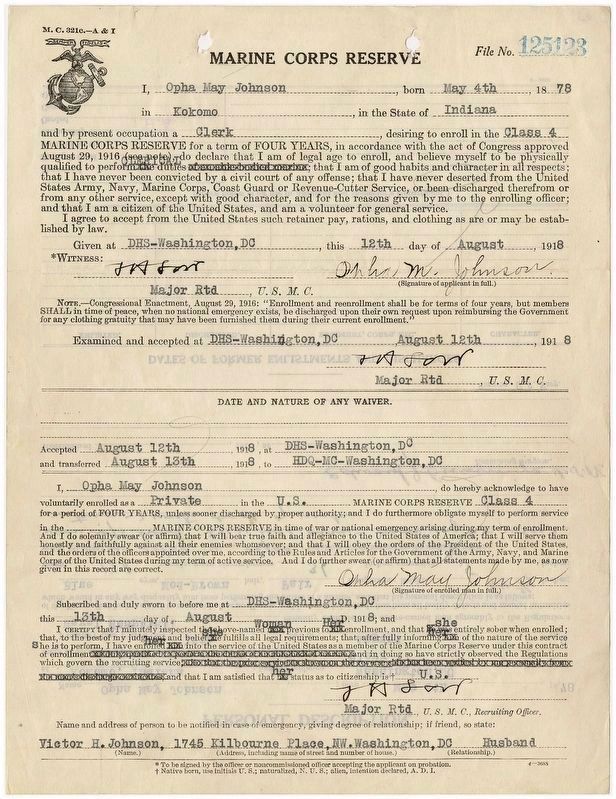 M. C. 321c.—A & I
MARINE CORPS RESERVE
File No. 125123
I, Opha May Johnson, born May 4th 1878
in Kokomo, in the State of Indiana
and by present occupation a Clerk, desiring to enroll in the Class 4
MARINE CORPS RESERVE for a term of FOUR YEARS, in accordance with the act of Congress approved
August 29, 1916 (see note), do declare that I am of legal age to enroll, and believe myself to be physically
qualified to perform the duties of an able-bodied marine; that I am of good habits and character in all respects;
that I have never been convicted by a civil court of any offense; that I have never deserted from the United
States Army, Navy, Marine Corps, Coast Guard or Revenue-Cutter Service, or been discharged therefrom or
from any other service, except with good character, and for the reasons given by me to the enrolling officer;
and that I am a citizen of the United States, and am a volunteer for general service.
I agree to accept from the United States such retainer pay, rations, and clothing as are or may be estab-
lished by law.
Given at DHS-Washington,DC, this 12th day of August, 1918
*WITNESS:
Opha M. Johnson.
(Signature of applicant in full.)
Major Rtd, U. S. M. C.
NOTE.—Congressional Enactment, August 29, 1916: "Enrollment and reenrollment shall be for terms of four years, but members
SHALL in time of peace, when no national emergency exists, be discharged upon their own request upon reimbursing the Government
for any clothing gratuity that may have been furnished them during their current enrollment."
Examined and accepted at DHS-Washington,DC August 12th, 1918
Major Rtd, U. S. M. C.
DATE AND NATURE OF ANY WAIVER.
Accepted August 12th 1918, at DHS-Washington,DC
and transferred August 13th 1918 to HDQ-MC-Washington,DC
I, Opha May Johnson, do hereby acknowledge to have
voluntarily enrolled as a Private in the U.S. MARINE CORPS RESERVE Class 4
for a period of FOUR YEARS, unless sooner discharged by proper authority; and I do furthermore obligate myself to perform service
in the MARINE CORPS RESERVE in time of war or national emergency arising during my term of enrollment.
And I do solemnly swear (or affirm) that I will bear true faith and allegiance to the United States of America; that I will serve them
honestly and faithfully against all their enemies whomsoever; and that I will obey the orders of the President of the United States,
and the orders of the officers appointed over me, according to the Rules and Articles for the Government of the Army, Navy, and Marine
Corps of the United States during my term of active service. And I do further swear (or affirm) that all statements made by me, as now
given in this record are correct.
Opha May Johnson
(Signature of enrolled man in full.)
Subscribed and duly sworn to before me at DHS-Washington,DC
this 13th day of August A. D. 1918; and
woman Her she
I CERTIFY that I minutely inspected previous to enrollment, and that entirely sober when enrolled;
she her
that, to the best of my judgment and belief, fulfills all legal requirements; that, after fully informing of the nature of the service
she is to perform, I have enrolled her into the service of the United States as a member of the Marine Corps Reserve under this contract
of enrollment and in doing so have strictly observed the Regulations
which govern the recruiting service;
and that I am satisfied that her status as to citizenship is † U.S.
Major Rtd, U. S. M. C., Recruiting Officer.
Name and address of person to be notified in case of emergency, giving degree of relationship; if friend, so state:
Victor H.Johnson, 1745 Kilbourne Place,NW.Washington,DC Husband
(Name.) (Address, including name of street and number of house.) (Relationship.)
* To be signed by the officer or noncommissioned officer accepting the applicant on probation.
† Native born, use initials U. S.; naturalized, N. U. S.; alien, intention declared, A. D. I.